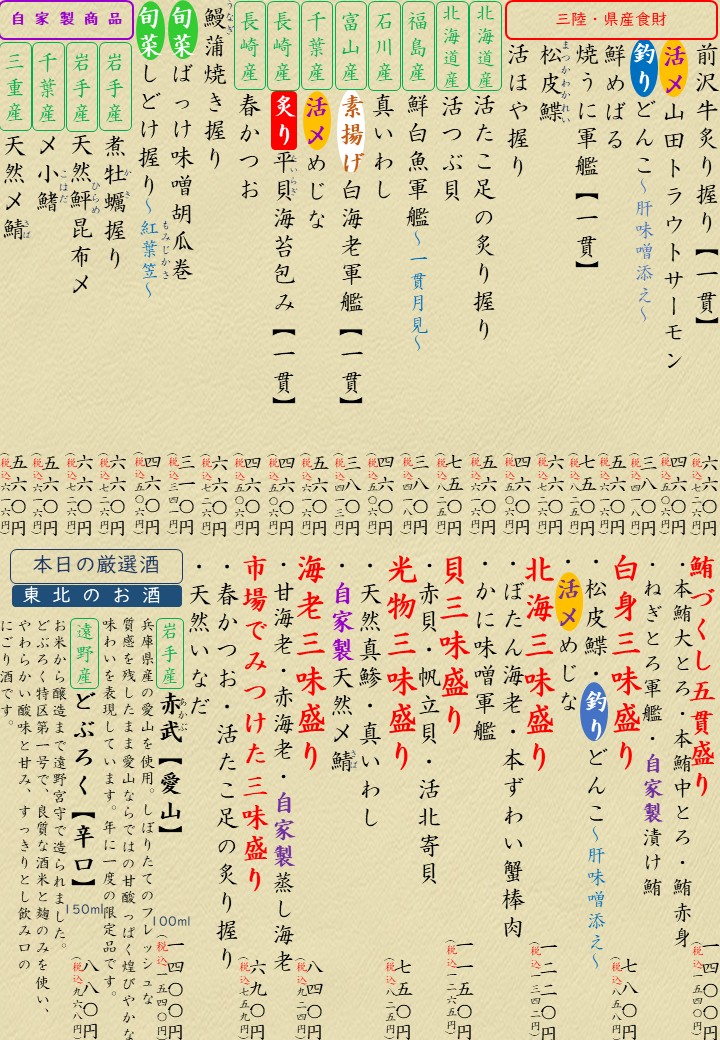 三陸・県産食財
前沢牛炙り握り【一貫】 六六〇円（税込七二六円）
活〆山田トラウトサーモン 四六〇円（税込五〇六円）
釣りどんこ〜肝味噌添え〜 三八〇円（税込四一八円）
鮮めばる 五六〇円（税込六一六円）
焼うに軍艦【一貫】 七五〇円（税込八二五円）
松皮鰈 まつかわかれい 六六〇円（税込七二六円）
活ほや握り 四六〇円（税込五〇六円）
北海道産 活たこ足の炙り握り 五六〇円（税込六一六円）
北海道産 活つぶ貝 七五〇円（税込八二五円）
福島産 鮮白魚軍艦〜一貫月見〜 三八〇円（税込四一八円）
石川産 真いわし 四六〇円（税込五〇六円）
富山産 素揚げ白海老軍艦【一貫】 三八〇円
千葉産 活〆めじな 五六〇円（税込六一六円）
長崎産 炙り平貝海苔包み【一貫】 たいらぎ 四六〇円（税込五〇六円）
長崎産 春かつお 四六〇円（税込五〇六円）
鰻蒲焼き握り うなぎ 六六〇円（税込七二六円）
旬菜ばっけ味噌胡瓜巻 三一〇円（税込三四一円）
旬菜しどけ握り〜紅葉笠〜 もみじかさ 四六〇円（税込五〇六円）
自家製商品
岩手産 煮牡蠣握り かき 六六〇円（税込七二六円）
岩手産 天然鮃昆布〆 ひらめ 六六〇円（税込七二六円）
千葉産 〆小鰭 こはだ 五六〇円（税込六一六円）
三重産 天然〆鯖 さば 五六〇円（税込六一六円）
鮪づくし五貫盛り 一四〇〇円（税込一五四〇円）
・本鮪大とろ・本鮪中とろ・鮪赤身
・ねぎとろ軍艦・自家製漬け鮪
白身三味盛り 七八〇円（税込八五八円）
・松皮鰈・釣りどんこ〜肝味噌添え〜
活〆めじな
北海三味盛り 一二二〇円（税込一三四二円）
・ぼたん海老・本ずわい蟹棒肉
・かに味噌軍艦
貝三味盛り 一一五〇円（税込一二六五円）
・赤貝・帆立貝・活北寄貝
光物三味盛り 七五〇円（税込八二五円）
・天然真鯵・真いわし
・自家製天然〆鯖 さば
海老三味盛り 八四〇円（税込九二四円）
・甘海老・赤海老・自家製蒸し海老
市場でみつけた三味盛り 六九〇円（税込七五九円）
・春かつお・活たこ足の炙り握り
・天然いなだ
本日の厳選酒
東北のお酒
岩手産 赤武【愛山】 あかぶ 100ml 一四〇〇円（税込一五四〇円）
兵庫県産の愛山を使用。しぼりたてのフレッシュな
質感を残したまま愛山ならではの甘酸っぱく煌びやかな
味わいを表現しています。年に一度の限定品です。
遠野産 どぶろく【辛口】 150ml 八八〇円（税込九六八円）
お米から醸造まで遠野宮守で造られました。
どぶろく特区第一号で、良質な酒米と麹のみを使い、
やわらかい酸味と甘み、すっきりとし飲み口の
にごり酒です。